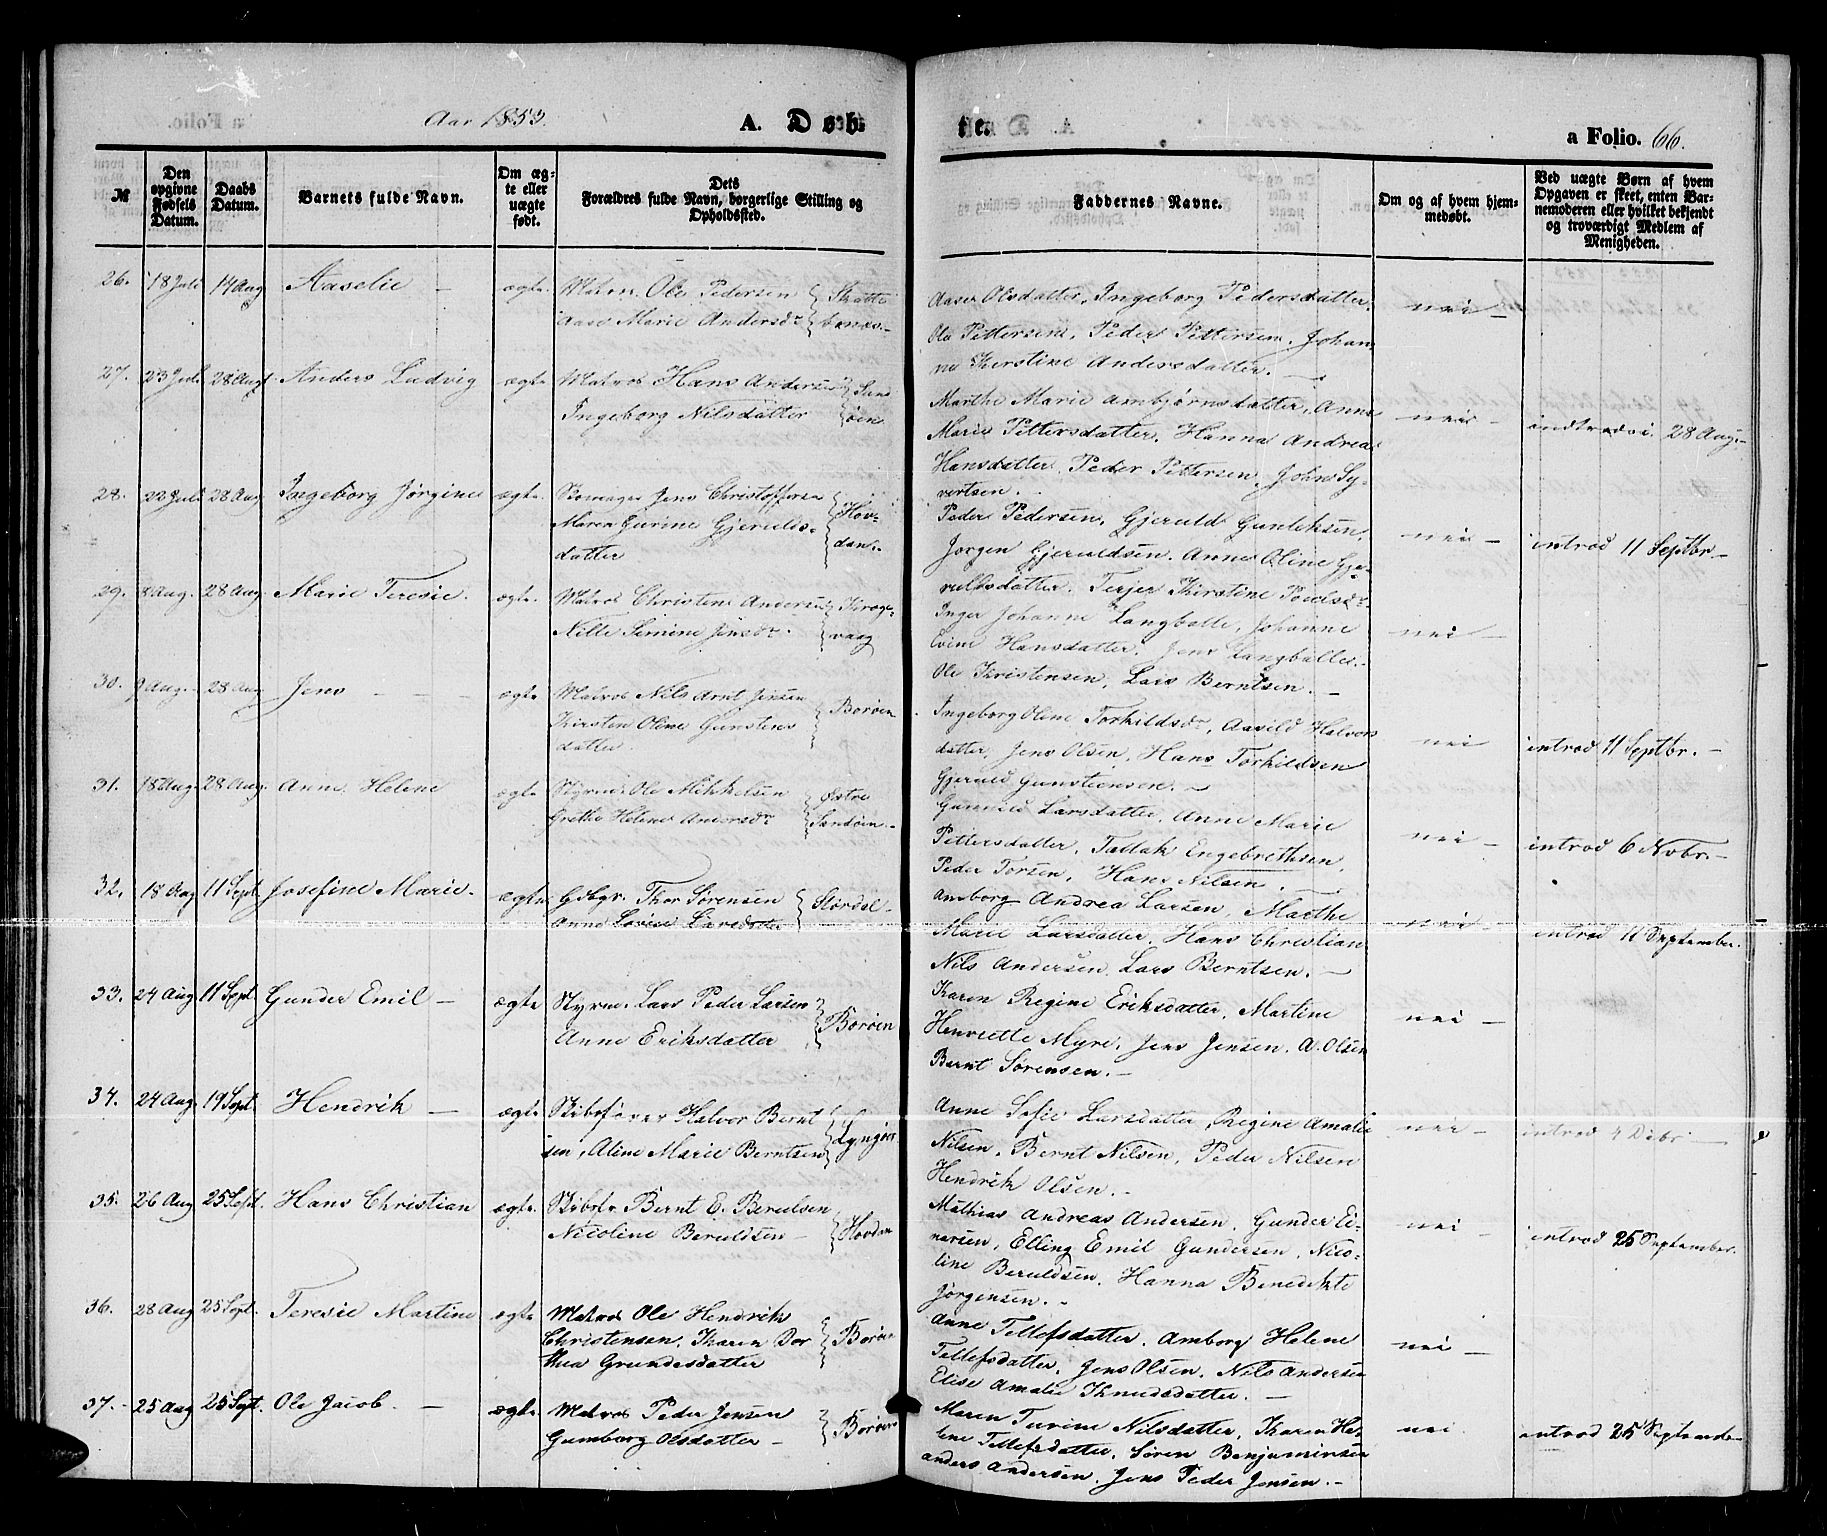 Aar 1853.
A. Døb-
te.
a Folio. 66.
№
Den opgivne Fødsels Datum.
Daabs Datum.
Barnets fulde Navn.
Om ægte eller uægte født.
Dets Forældres fulde Navn, borgerlige Stilling og Opholdssted.
Faddernes Navne.
Om og af hvem hjemmedøbt.
Ved uægte Børn af hvem Opgaven er skeet, enten Barnemoderen eller hvilket bekjendt og troværdigt Medlem af Menigheden.
26. 18 Juli 14 Aug Aaselie — ægte Matros Ole Pedersen
Aase Marie Andersdr
Aaser Olsdatter, Ingeborg Pedersdatter,
Ole Pettersen, Peder Pettersen, Johan-
ne Kerstine Andersdatter. —
nei —
27. 23 Juli 28 Augt Anders Ludvig ægte Matros Hans Andersen Sand
Ingeborg Nilsdatter øen
Marthe Marie Ambjørnsdatter, Anne
Marie Pettersdatter, Hanna Andrea
Hansdatter, Peder Pettersen, John Sy-
vertsen.
nei — 28 Aug. —
28. 22 Juli 28 Aug Ingeborg Jørgine ægte Jens Christoffersen Hov-
Maren Gurine Gjerulds- den.
datter
Peder Pedersen, Gjeruld Gunleksen,
Jørgen Gjeruldsen. Anne Oline Gje-
ruldsdatter. Terjer Kirstine
nei — introd 11 Septbr —
29. 8 Aug. 28 Aug Marie Teresie. ægte. Matros Christen Andersen
Nille Simine Jensdr. vaag
Inger Johanne Langballe, Johanne
Evine Hansdatter. Jens Langballe.
Ole Kristensen, Lars Berntsen. —
nei —
30. 9 Aug. 28 Aug Jens — ægte Matros Nils Arnt Jensen Borøen
Kirsten Oline Gunstens
datter.
Ingeborg Oline Torkildsdr, Aasild Halvors
datter, Jens Olsen, Hans Torkildsen
Gjeruld Gunsteensen. —
nei introd 11 Septbr. —
31. 18 Aug. 28 Aug. Anne Helene ægte Styrm. Ole Mikkelsen Østre
Grethe Helene Andorsdr Sandøen. —
Gunnild Larsdatter, Anne Marie
Pettersdatter. Tallak Engebrethsen,
Peder Torsen, Hans Nilsen.
nei — introd 6 Novbr. —
32. 18 Aug 11 Sept. Josefine Marie. ægte Gdbgr. Thor Sørensen Størdal
Anne Lovise Larsdatter
Amborg Andrea Larsen, Marthe
Marie Larsdatter, Hans Christian
Nils Andersen. Lars Berntsen. —
nei introd 11 September.
33. 24 Aug 11 Sept. Gunder Emil — ægte Styrm. Lars Peder Larsen Borøen
Anne Eriksdatter
Karen Regine Eriksdatter, Martine
Henriette Myre, Jens Jensen. A. Olsen
Bernt Sørensen. —
nei —
34. 24 Aug 19 Sept. Hendrik — ægte Skibsfører Halvor Bernt Lyngøer
sen, Aline Marie Berntsen
Anne Sofie Larsdatter, Regine Amalie
Nilsen, Bernt Nilsen, Peder Nilsen
Hendrik Olsen. —
nei — introd 4 Debr. —
35. 26 Aug 25 Sept. Hans Christian ægte. Skibsfr. Bernt E. Beruldsen, Hovden
Nicoline Beruldsen —
Mathias Andreas Andersen, Gunder Ei-
narsen, Elling Emil Gundersen, Nico-
line Beruldsen. Hanna Benedikte
Jørgensen. —
nei — introd 25 September.
36. 28 Aug 25 Sept. Teresie Martine ægte Matros Ole Hendrik Borøen
Christensen, Karen Dor
thea Grundesdatter
Anne Tellefsdatter. Amborg Helene
Tellefsdatter, Jens Olsen, Nils Andersen
Elise Amalie Knudsdatter. —
nei —
37. 25 Aug 25 Sept. Ole Jacob. — ægte. Matros Peder Jensen Borøen
Gumborg Olsdatter —
Maren Turine Nilsdatter, Karen He-
lene Tellefsdatter, Søren Benjaminsen
Anders Andersen, Jens Peder Jensen. —
nei. introd 25 Septembe-